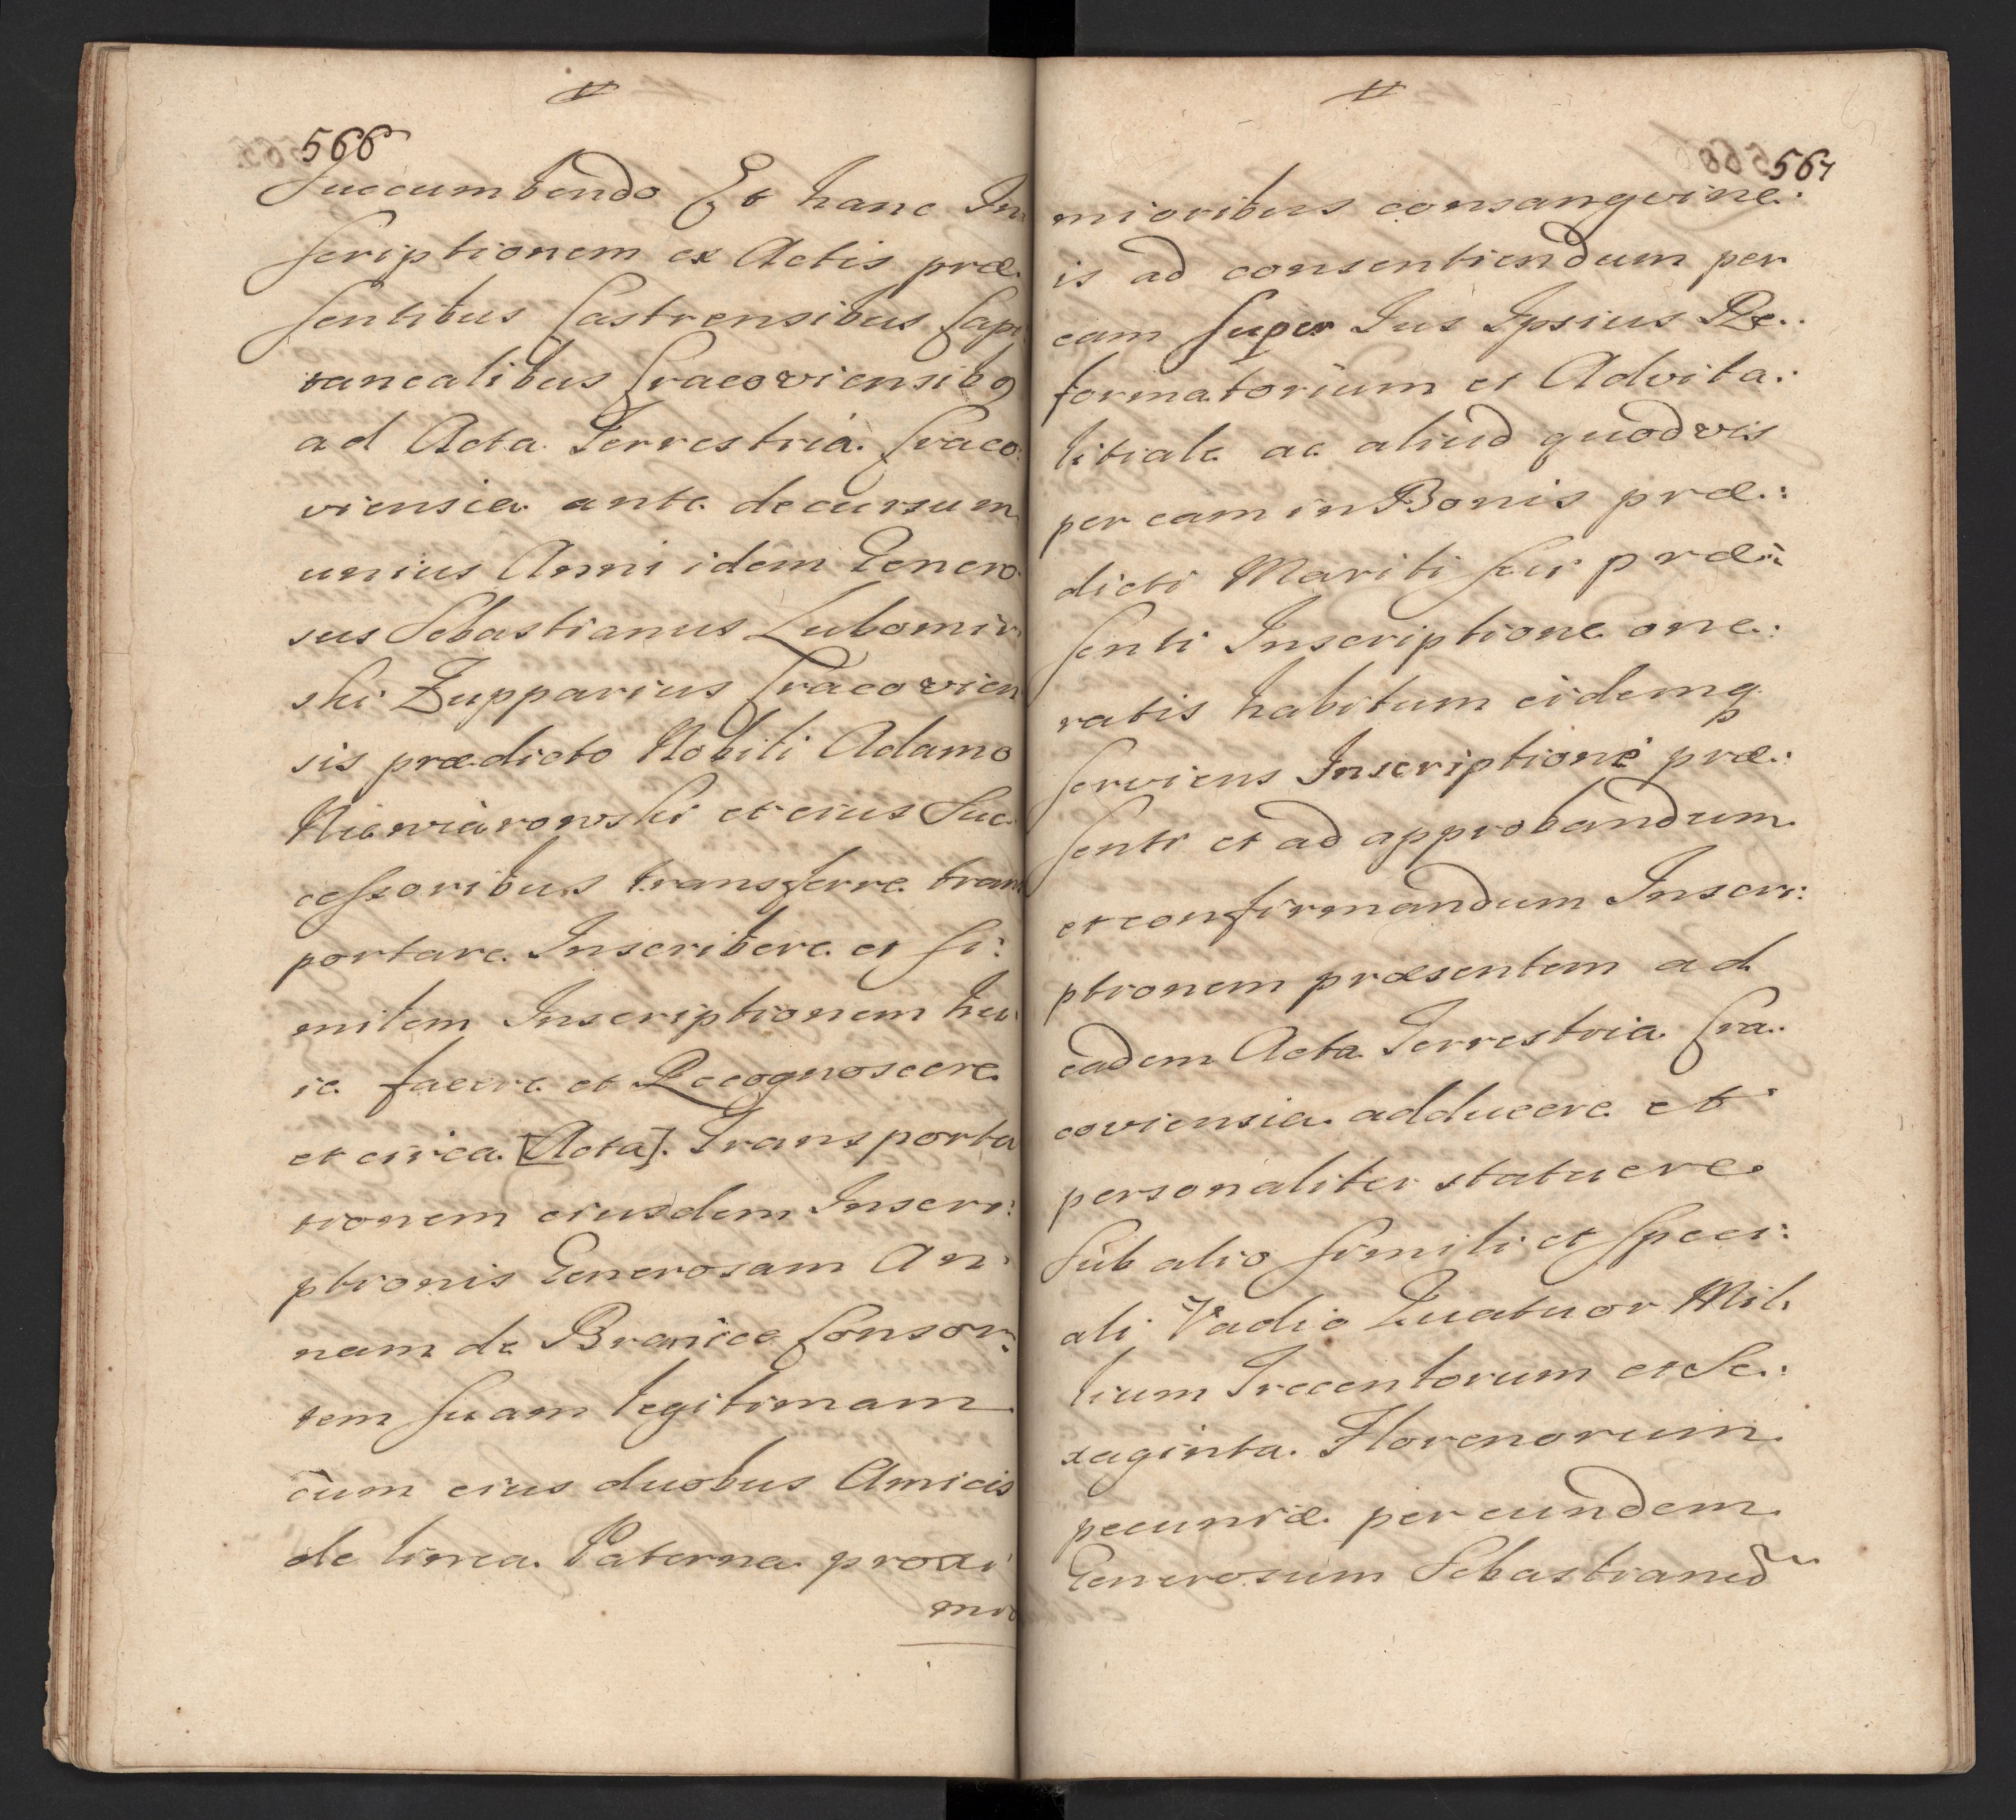 566
succumbendo Et hanc In
scriptionem ex Actis præ.
sentibus Castrensibus Capi
taneatibus Cracoviensibꝰ
ad Acta Terrestria Craco:
viensia ante decursum
unius Anni idem Genero
sus Sebastianus Lubomir
ski Zupparius Cracovien
sis prædicto Nobili Adamo
Niewiarowski et eius Suc
cessoribus transferre tran
portare Inscribere et si:
milem Inscriptionem hu
ic facere et Recognoscere
et circa [Acta]. Transporta
tionem eiusdem Inscri:
ptionis Generosam An:
nam de Branice Consor:
tem suam legitimam
cum eius duobus Amicis
de linea Paterna proxi
mio
567
mioribus consangvine:
is ad consentiendum per
eam super Ius Ipsius Re:
formatorium et Advita:
litiale ac aliud quodvis
per eam in Bonis præ:
dicti Mariti sui præ:
senti Inscriptione one:
ratis habitum eidemq
serviens Inscriptione præ:
senti et ad approbandum
et confirmandum Inscri:
ptionem præsentem ad
eadem Acta Terrestria Cra:
coviensia adducere et
personaliter statuere
sub alio simili et speci:
ali Vadio Quatuor Mil:
lium Trecentorum et Se:
xaginta Florenorum
pecuniæ per eundem
Generosum Sebastianum